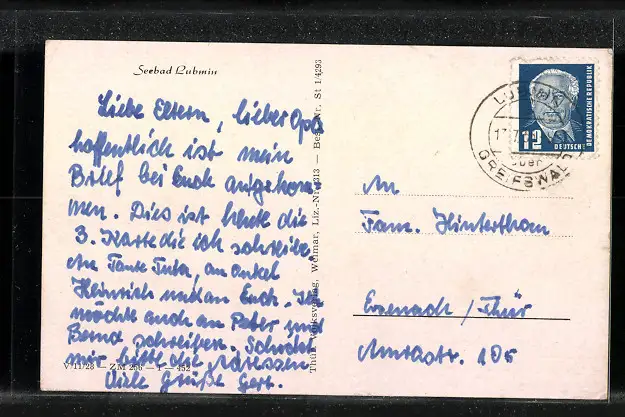 Seebad Lubmin
Liebe Eltern, lieber Opa
hoffentlich ist mein
Brief bei Euch angekom
men. Dies ist heute die
3. Karte die ich schreibe.
An Tante Tuta, an onkel
Heinrich und an Euch. Ich
möchte auch an Peter und
Bernd schreiben. Schickt
mir bitte die Adressen
Viele Grüße Gert.
V 11/28 — ZM 266 — 1 — 452
Thür. Volksverlag, Weimar, Liz.-Nr. 313 — Best.-Nr. St 1/4293
12
DEUTSCHE
DEMOKRATISCHE REPUBLIK
über
GREIFSWALD
An
Fam. Hinterthan
Eisenach / Thür
Amrastr. 106